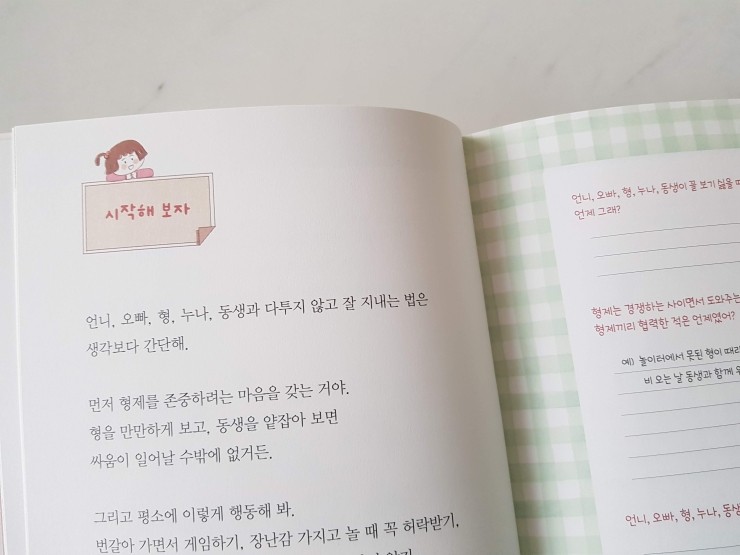 시작해 보자
언니, 오빠, 형, 누나, 동생과 다투지 않고 잘 지내는 법은
생각보다 간단해.
먼저 형제를 존중하려는 마음을 갖는 거야.
형을 만만하게 보고, 동생을 얕잡아 보면
싸움이 일어날 수밖에 없거든.
그리고 평소에 이렇게 행동해 봐.
번갈아 가면서 게임하기, 장난감 가지고 놀 때 꼭 허락받기,
언니, 오빠, 형, 누나, 동생이 꼴 보기 싫을 때
언제 그래?
형제는 경쟁하는 사이면서 도와주는
형제끼리 협력한 적은 언제였어?
예) 놀이터에서 못된 형이 때리
비 오는 날 동생과 함께 우
언니, 오빠, 형, 누나, 동생